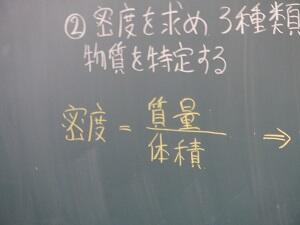 ②密度を求め3種類
物質を特定する
密度 = 質量
体積 ⇒